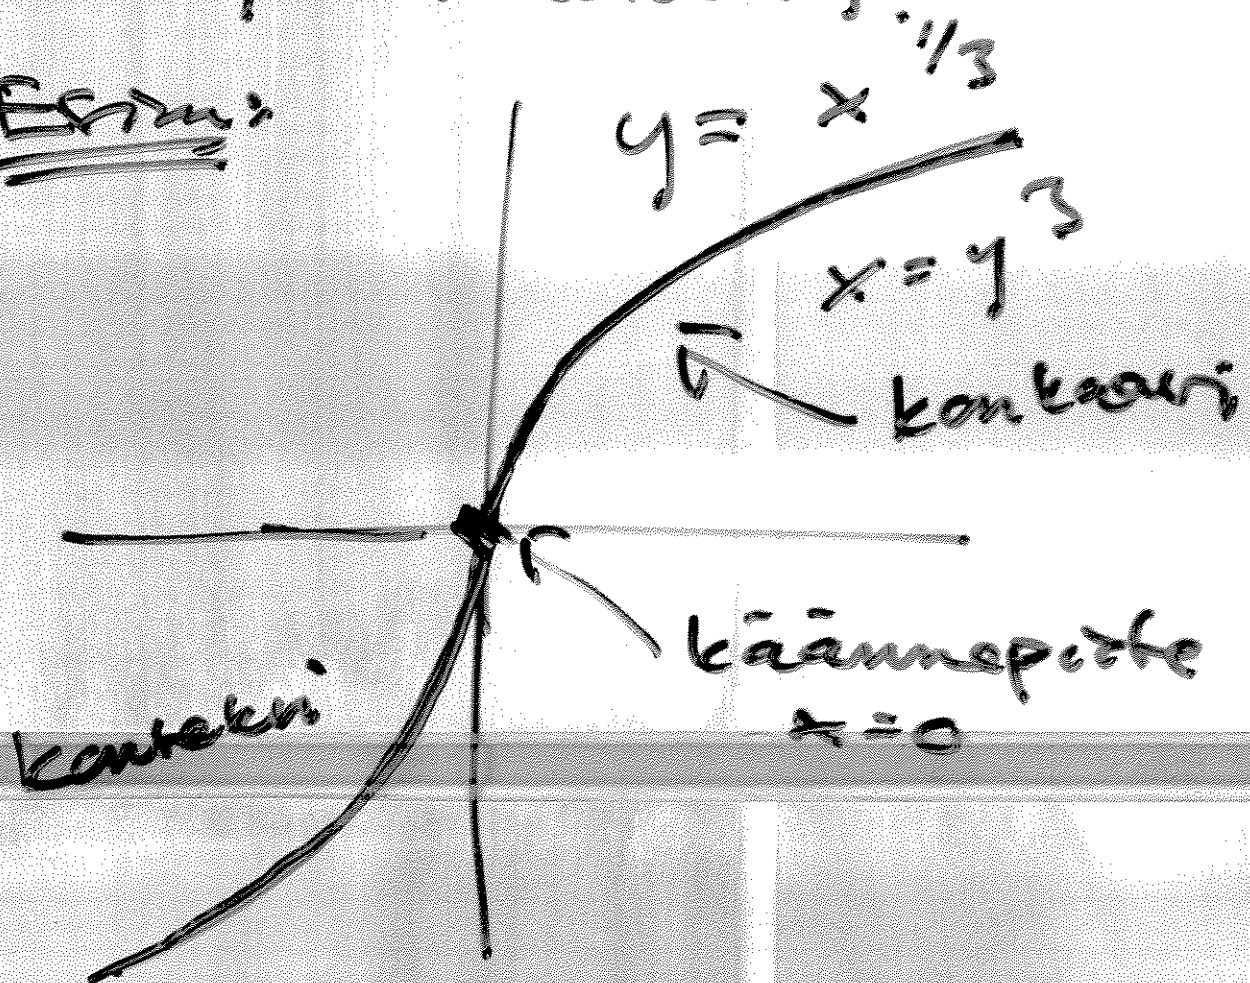 Esim:
y = x^{1/3}
x = y^3
konkaavi
käännepiste
x = 0
konveksi